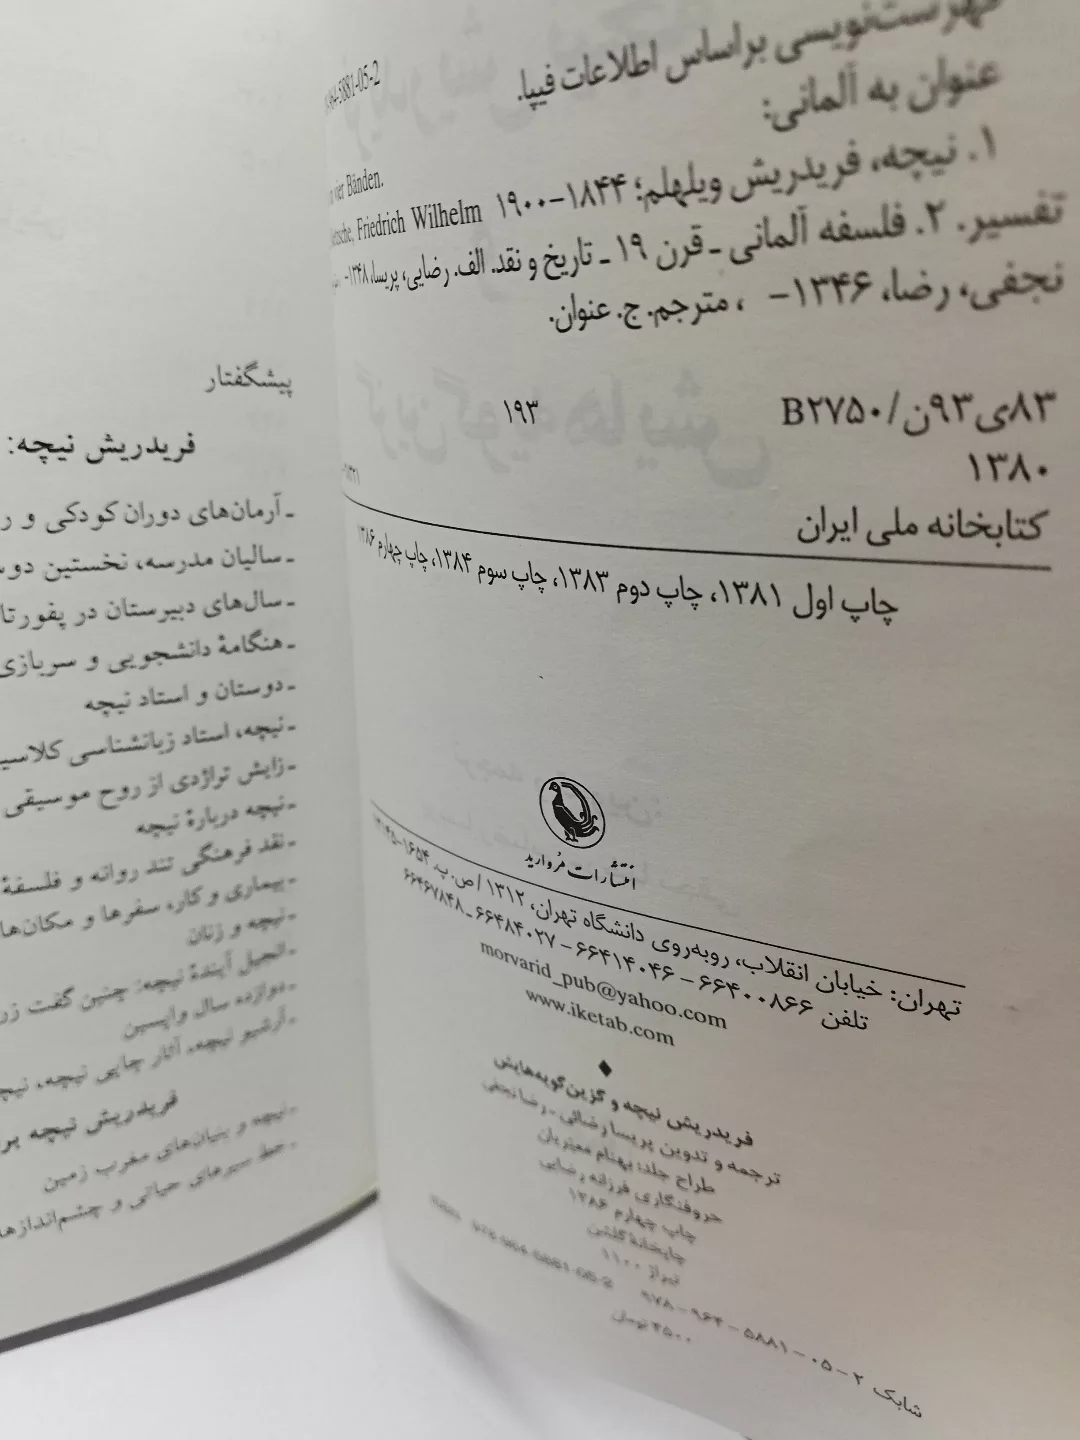 فهرست‌نویسی براساس اطلاعات فیپا.
عنوان به آلمانی:
vier Bänden.
۱. نیچه، فریدریش ویلهلم؛ ۱۸۴۴-۱۹۰۰ Friedrich Wilhelm
تفسیر. ۲. فلسفه آلمانی ـ قرن ۱۹ ـ تاریخ و نقد. الف. رضایی، پریسا، ۱۳۴۸-
نجفی، رضا، ۱۳۴۶- ، مترجم. ج. عنوان.
۱۹۳
B۲۷۵۰/ن۹۳ی۸۳
۱۳۸۰
کتابخانه ملی ایران
چاپ اول ۱۳۸۱، چاپ دوم ۱۳۸۳، چاپ سوم ۱۳۸۴، چاپ چهارم ۱۳۸۶
انتشارات مروارید
تهران: خیابان انقلاب، روبه‌روی دانشگاه تهران، ۱۳۱۲ / ص. پ. ۱۶۵۴-۱۳۱۴۵
تلفن ۶۶۴۰۰۸۶۶ - ۶۶۴۱۴۰۴۶ - ۶۶۴۸۴۰۲۷ - ۶۶۴۶۷۸۴۸
morvarid_pub@yahoo.com
www.iketab.com
فریدریش نیچه و گزین‌گویه‌هایش
ترجمه و تدوین پریسا رضائی - رضا نجفی
طراح جلد: بهنام معیریان
حروفنگاری فرزانه رضایی
چاپ چهارم ۱۳۸۶
چاپخانهٔ گلشن
تیراژ ۱۱۰۰
ISBN 978-964-5881-05-2
شابک ۲ - ۰۵ - ۵۸۸۱ - ۹۶۴ - ۹۷۸
۴۵۰۰ تومان
پیشگفتار
فریدریش نیچه:
ـ آرمان‌های دوران کودکی و
ـ سالیان مدرسه، نخستین
ـ سال‌های دبیرستان در پفورتا
ـ هنگامهٔ دانشجویی و سربازی
ـ دوستان و استاد نیچه
ـ نیچه، استاد زبانشناسی
ـ زایش تراژدی از روح موسیقی
ـ نیچه دربارهٔ نیچه
ـ نقد فرهنگی تند روانه و فلسفهٔ
ـ بیماری و کار، سفرها و مکان‌ها
ـ نیچه و زنان
ـ انجیل آیندهٔ نیچه: چنین گفت
ـ دوازده سال واپسین
ـ آرشیو نیچه، آثار چاپی نیچه،
فریدریش نیچه
ـ نیچه و بنیان‌های مغرب زمین
ـ خط سیرهای حیاتی و چشم‌اندازها